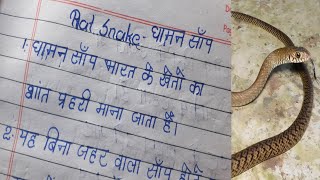 Rat Snake - धामन साँप
1. धामन साँप भारत के खेतों का
शांत प्रहरी माना जाता है।
2. यह बिना जहर वाला साँप